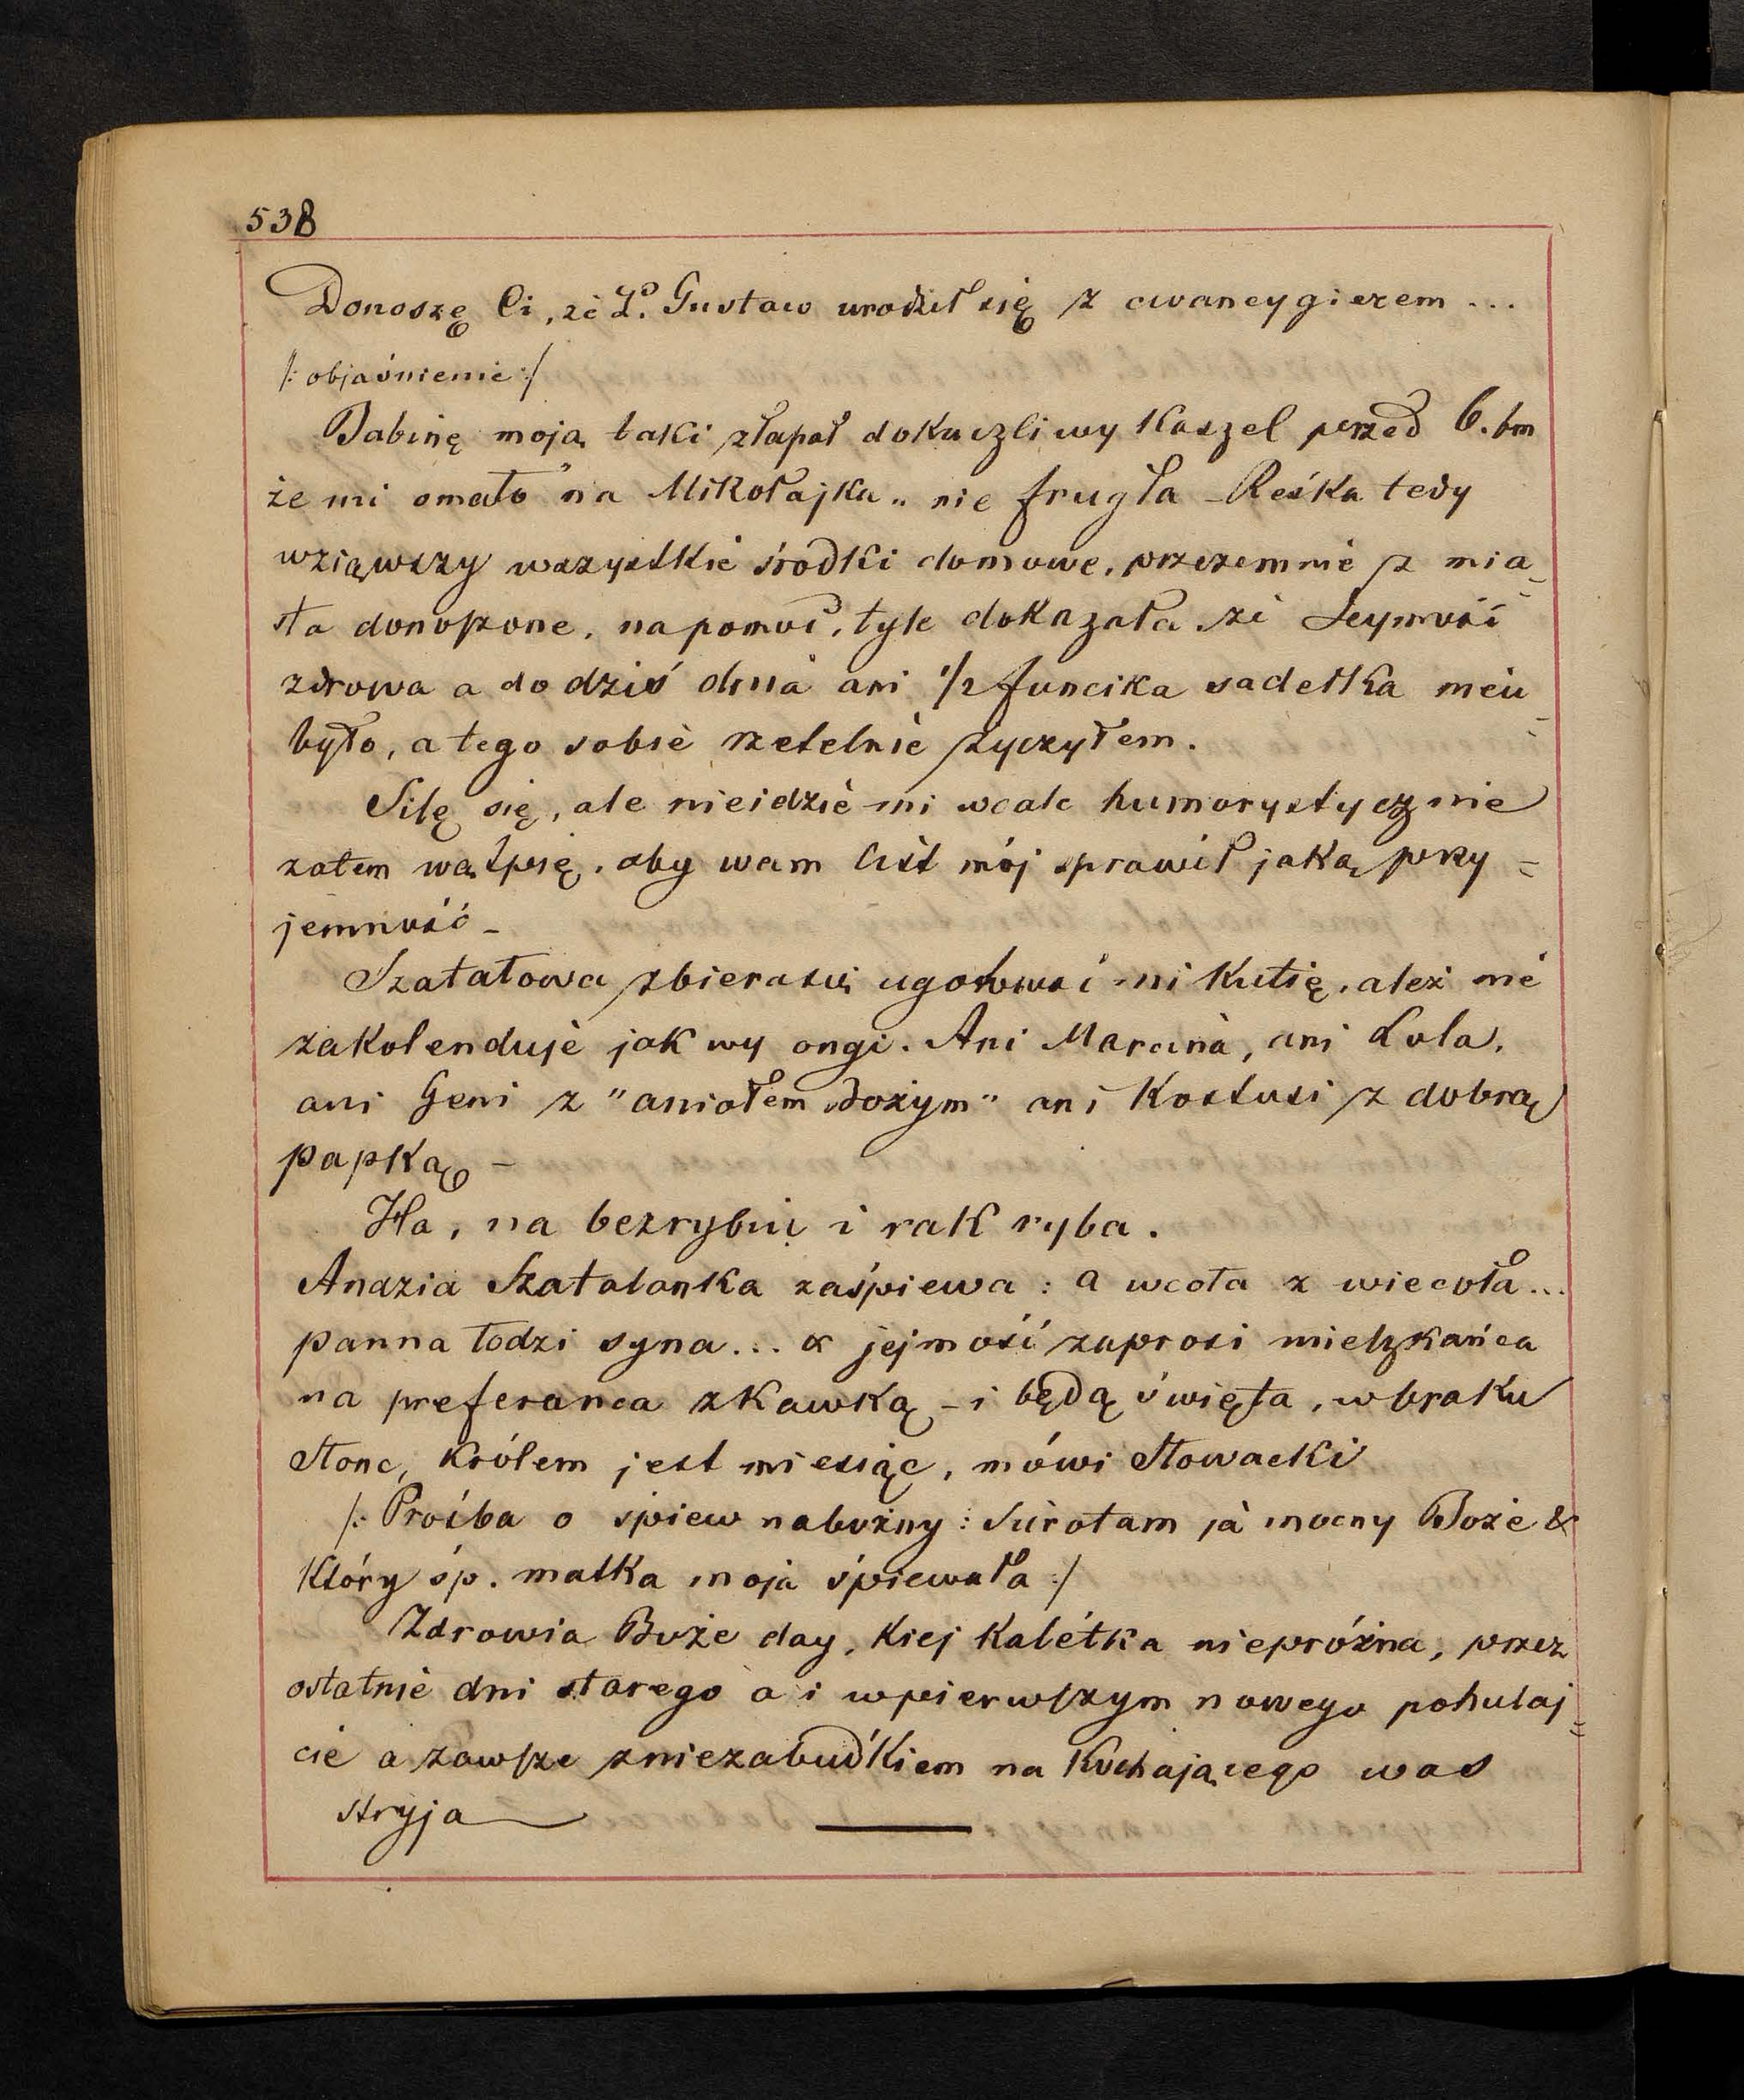 538
Donoszę Ci, że Gustaw urodził się z cwancygierem ...
/: objaśnienie :/
Babinę moją taki złapał dokuczliwy kaszel przed 6. bm
że mi omało "na Mikołajka" nie frugła – Reśka tedy
wziąwszy wszystkie środki domowe, przezemnie z mia-
sta donoszone, na pomoc, tyle dokazała że Jeymość
zdrowa a do dziś dnia ani 1/2 funcika sadełka nieu-
było, a tego sobie rzetelnie życzyłem.
Silę się, ale nieidzie mi wcale humorystycznie
zatem wątpię, aby wam list mój sprawił jaką przy=
jemność –
Szatałowa zbiera się ugotować mi kutię, ależ nie
zakolenduje jak wy ongi. Ani Marcina, ani Lola,
ani Geni z "aniołem Bożym" ani Kostusi z dobrą
papką –
Ha, na bezrybiu i rak ryba.
Anazia Szatalanka zaśpiewa : a wcoła z wiecoła...
panna łodzi syna... a jejmość zaprosi mieszkańca
na preferanca z kawką – i będą święta, w braku
słonc, królem jest miesiąc, mówi Słowacki
/: Prośba o śpiew nabożny : Sierotam ja mocny Boże &
który śp. matka moja śpiewała :/
Zdrowia Boże day, kiej kalétka niepróżna, przez
ostatnie dni starego a i w pierwszym nowego pohulaj=
cie a zawsze z niezabudkiem na kochającego was
stryja